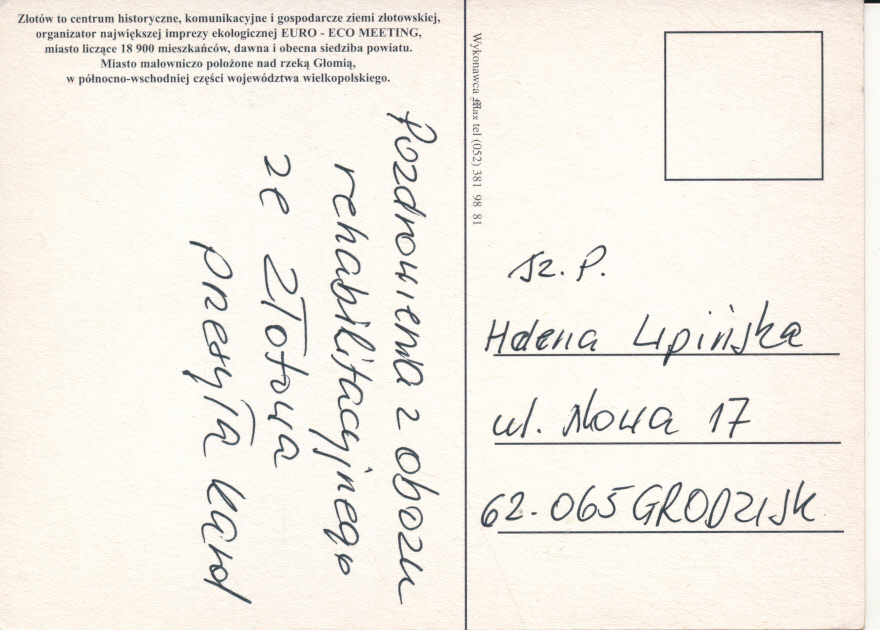 Złotów to centrum historyczne, komunikacyjne i gospodarcze ziemi złotowskiej,
organizator największej imprezy ekologicznej EURO - ECO MEETING,
miasto liczące 18 900 mieszkańców, dawna i obecna siedziba powiatu.
Miasto malowniczo położone nad rzeką Głomią,
w północno-wschodniej części województwa wielkopolskiego.
Pozdrowienia z obozu
rehabilitacyjnego
ze Złotowa
przesyła Karol
Wykonawca tel (052) 381 98 81
Sz. P.
Helena Lipińska
ul. Nowa 17
62-065 GRODZISK